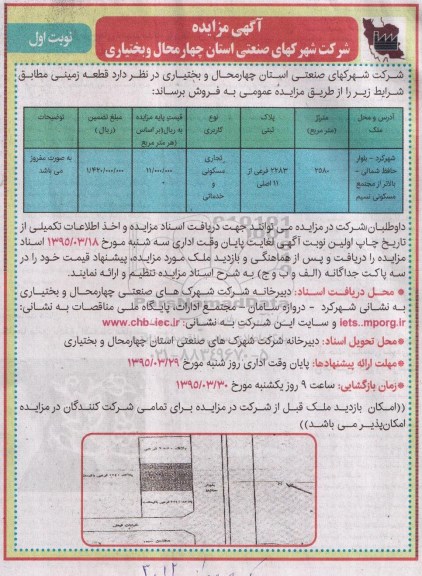 آگهی مزایده
نوبت اول
شرکت شهرکهای صنعتی استان چهارمحال وبختیاری
شرکت شهرکهای صنعتی استان چهارمحال و بختیاری در نظر دارد قطعه زمینی مطابق
شرایط زیر را از طریق مزایده عمومی به فروش برساند:
آدرس و محل ملک
متراژ (متر مربع)
پلاک ثبتی
نوع کاربری
قیمت پایه مزایده به ریال(بر اساس هر متر مربع)
مبلغ تضمین (ریال)
توضیحات
شهرکرد - بلوار حافظ شمالی - بالاتر از مجتمع مسکونی نسیم
۲۵۸۰
۲۲۸۳ فرعی از ۱۱ اصلی
تجاری مسکونی و خدماتی
۱۱/۰۰۰/۰۰۰
۱/۴۲۰/۰۰۰/۰۰۰
به صورت مفروز می باشد
داوطلبان شرکت در مزایده می توانند جهت دریافت اسناد مزایده و اخذ اطلاعات تکمیلی از
تاریخ چاپ اولین نوبت آگهی لغایت پایان وقت اداری سه شنبه مورخ ۱۳۹۵/۰۳/۱۸ اسناد
مزایده را دریافت و پس از هماهنگی و بازدید ملک مورد مزایده، پیشنهاد قیمت خود را در
سه پاکت جداگانه (الف و ب و ج) به شرح اسناد مزایده تنظیم و ارائه نمایند.
محل دریافت اسناد: دبیرخانه شرکت شهرک های صنعتی چهارمحال و بختیاری
به نشانی شهرکرد - دروازه سامان - مجتمع ادارات، پایگاه ملی مناقصات به نشانی:
iets.mporg.ir و سایت این شرکت به نشانی: www.chb-iec.ir
محل تحویل اسناد: دبیرخانه شرکت شهرک های صنعتی استان چهارمحال و بختیاری
مهلت ارائه پیشنهادها: پایان وقت اداری روز شنبه مورخ ۱۳۹۵/۰۳/۲۹
زمان بازگشایی: ساعت ۹ روز یکشنبه مورخ ۱۳۹۵/۰۳/۳۰
((امکان بازدید ملک قبل از شرکت در مزایده برای تمامی شرکت کنندگان در مزایده
امکان‌پذیر می باشد))